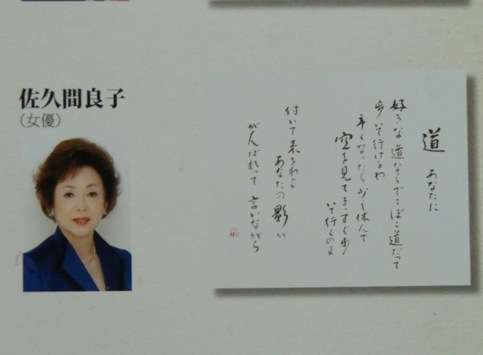 佐久間良子
（女優）
道
あなたに
好きな道ならでこぼこ道だって
歩いて行けるわ
辛くなったら少し休んで
空を見てまっすぐ歩
いて行くのよ
付いて来るわよ
あなたの影が
がんばれって言いながら